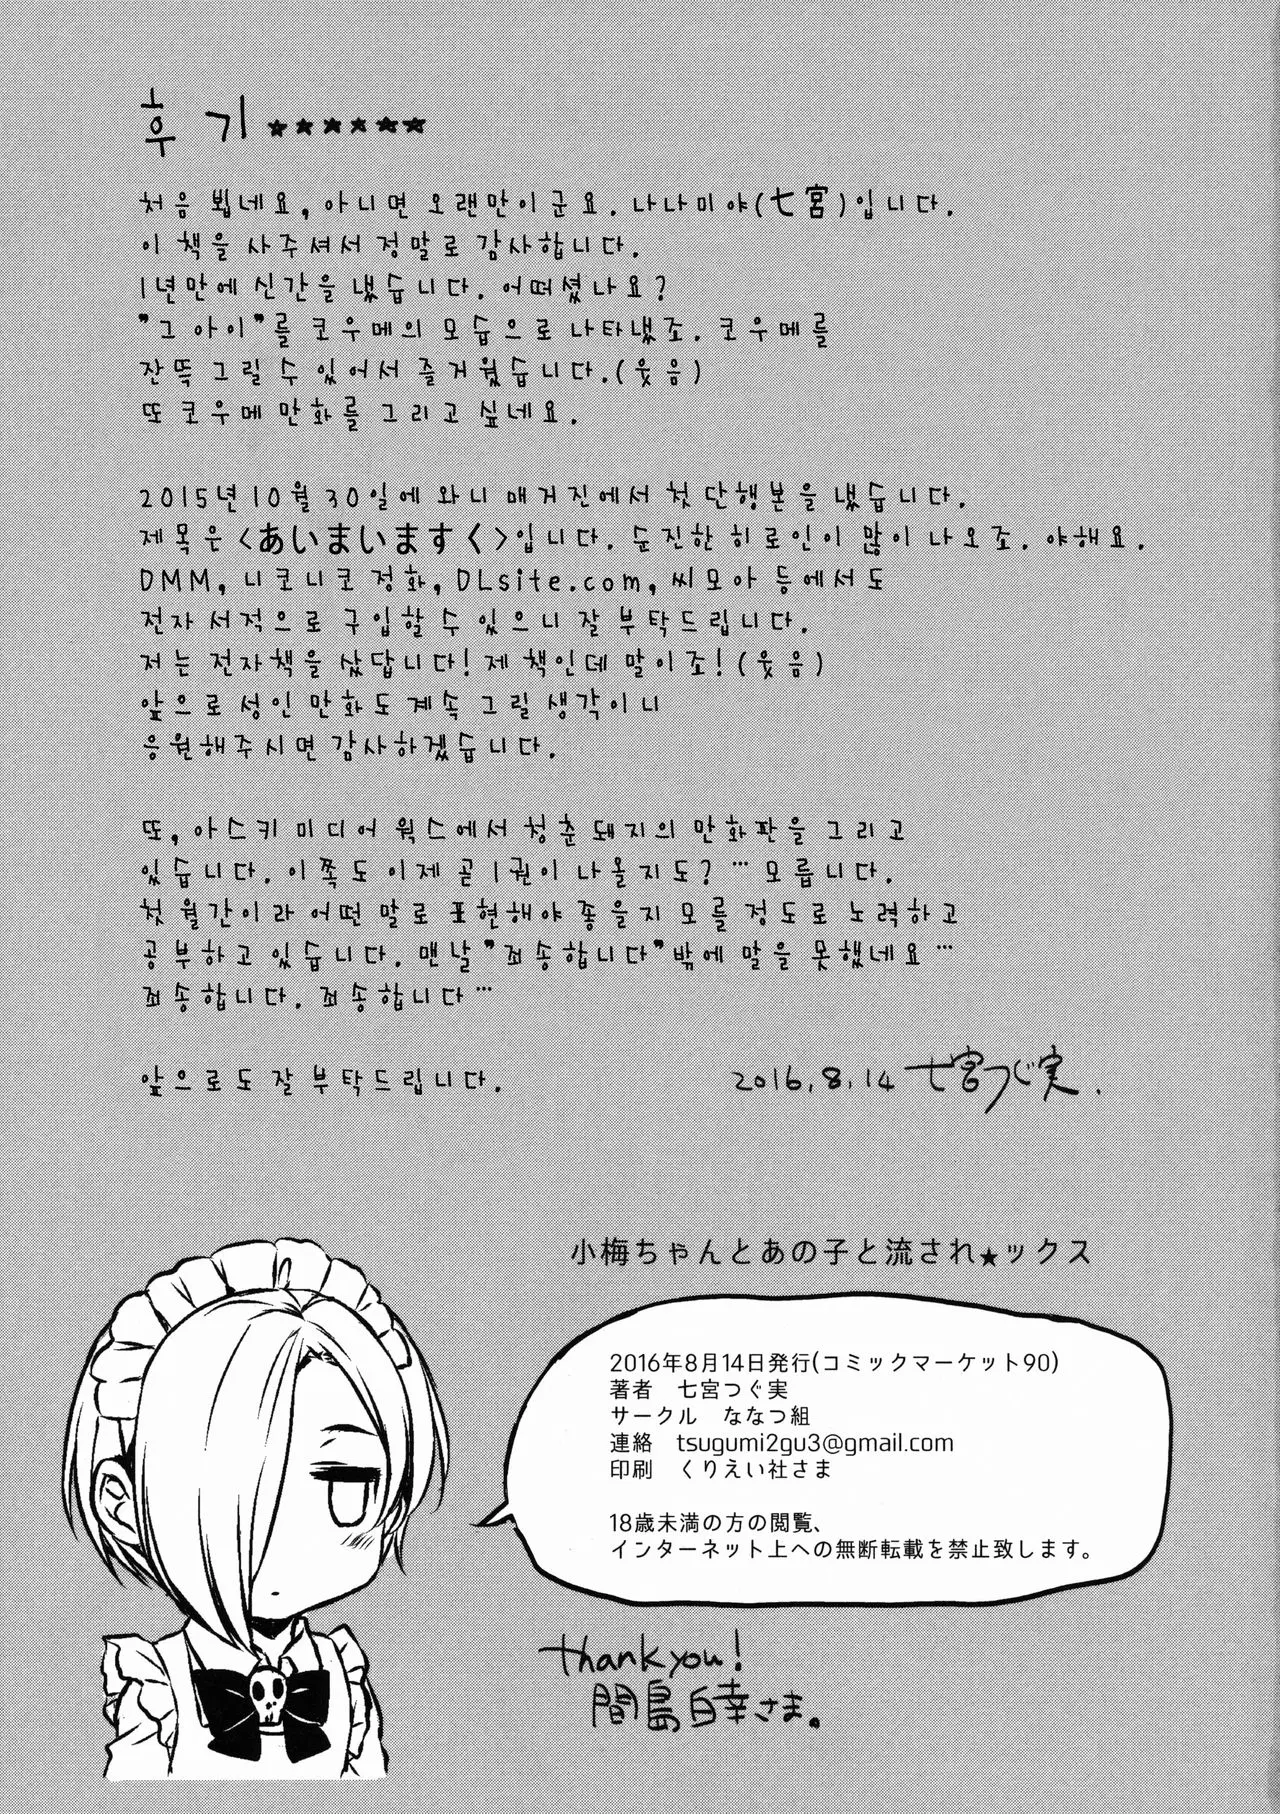 후기 ★★★★★★
처음 뵙네요, 아니면 오랜만이군요. 나나미야(七宮)입니다.
이 책을 사주셔서 정말로 감사합니다.
1년만에 신간을 냈습니다. 어떠셨나요?
"그 아이"를 코우메의 모습으로 나타냈죠. 코우메를
잔뜩 그릴 수 있어서 즐거웠습니다.(웃음)
또 코우메 만화를 그리고 싶네요.
2015년 10월 30일에 와니 매거진에서 첫 단행본을 냈습니다.
제목은 <あいまいますく>입니다. 순진한 히로인이 많이 나오죠. 야해요.
DMM, 니코니코 정화, DLsite.com, 씨모아 등에서도
전자 서적으로 구입할 수 있으니 잘 부탁드립니다.
저는 전자책을 샀답니다! 제 책인데 말이죠!(웃음)
앞으로 성인 만화도 계속 그릴 생각이니
응원해주시면 감사하겠습니다.
또, 아스키 미디어 웍스에서 청춘 돼지의 만화판을 그리고
있습니다. 이쪽도 이제 곧 1권이 나올지도? … 모릅니다.
첫 월간이라 어떤 말로 표현해야 좋을지 모를 정도로 노력하고
공부하고 있습니다. 맨날 "죄송합니다"밖에 말을 못했네요…
죄송합니다. 죄송합니다…
앞으로도 잘 부탁드립니다.
2016.8.14 七宮つぐ実.
小梅ちゃんとあの子と流され★ックス
2016年8月14日発行(コミックマーケット90)
著者　七宮つぐ実
サークル　ななつ組
連絡　tsugumi2gu3@gmail.com
印刷　くりえい社さま
18歳未満の方の閲覧、
インターネット上への無断転載を禁止致します。
thank you!
間島白幸さま。